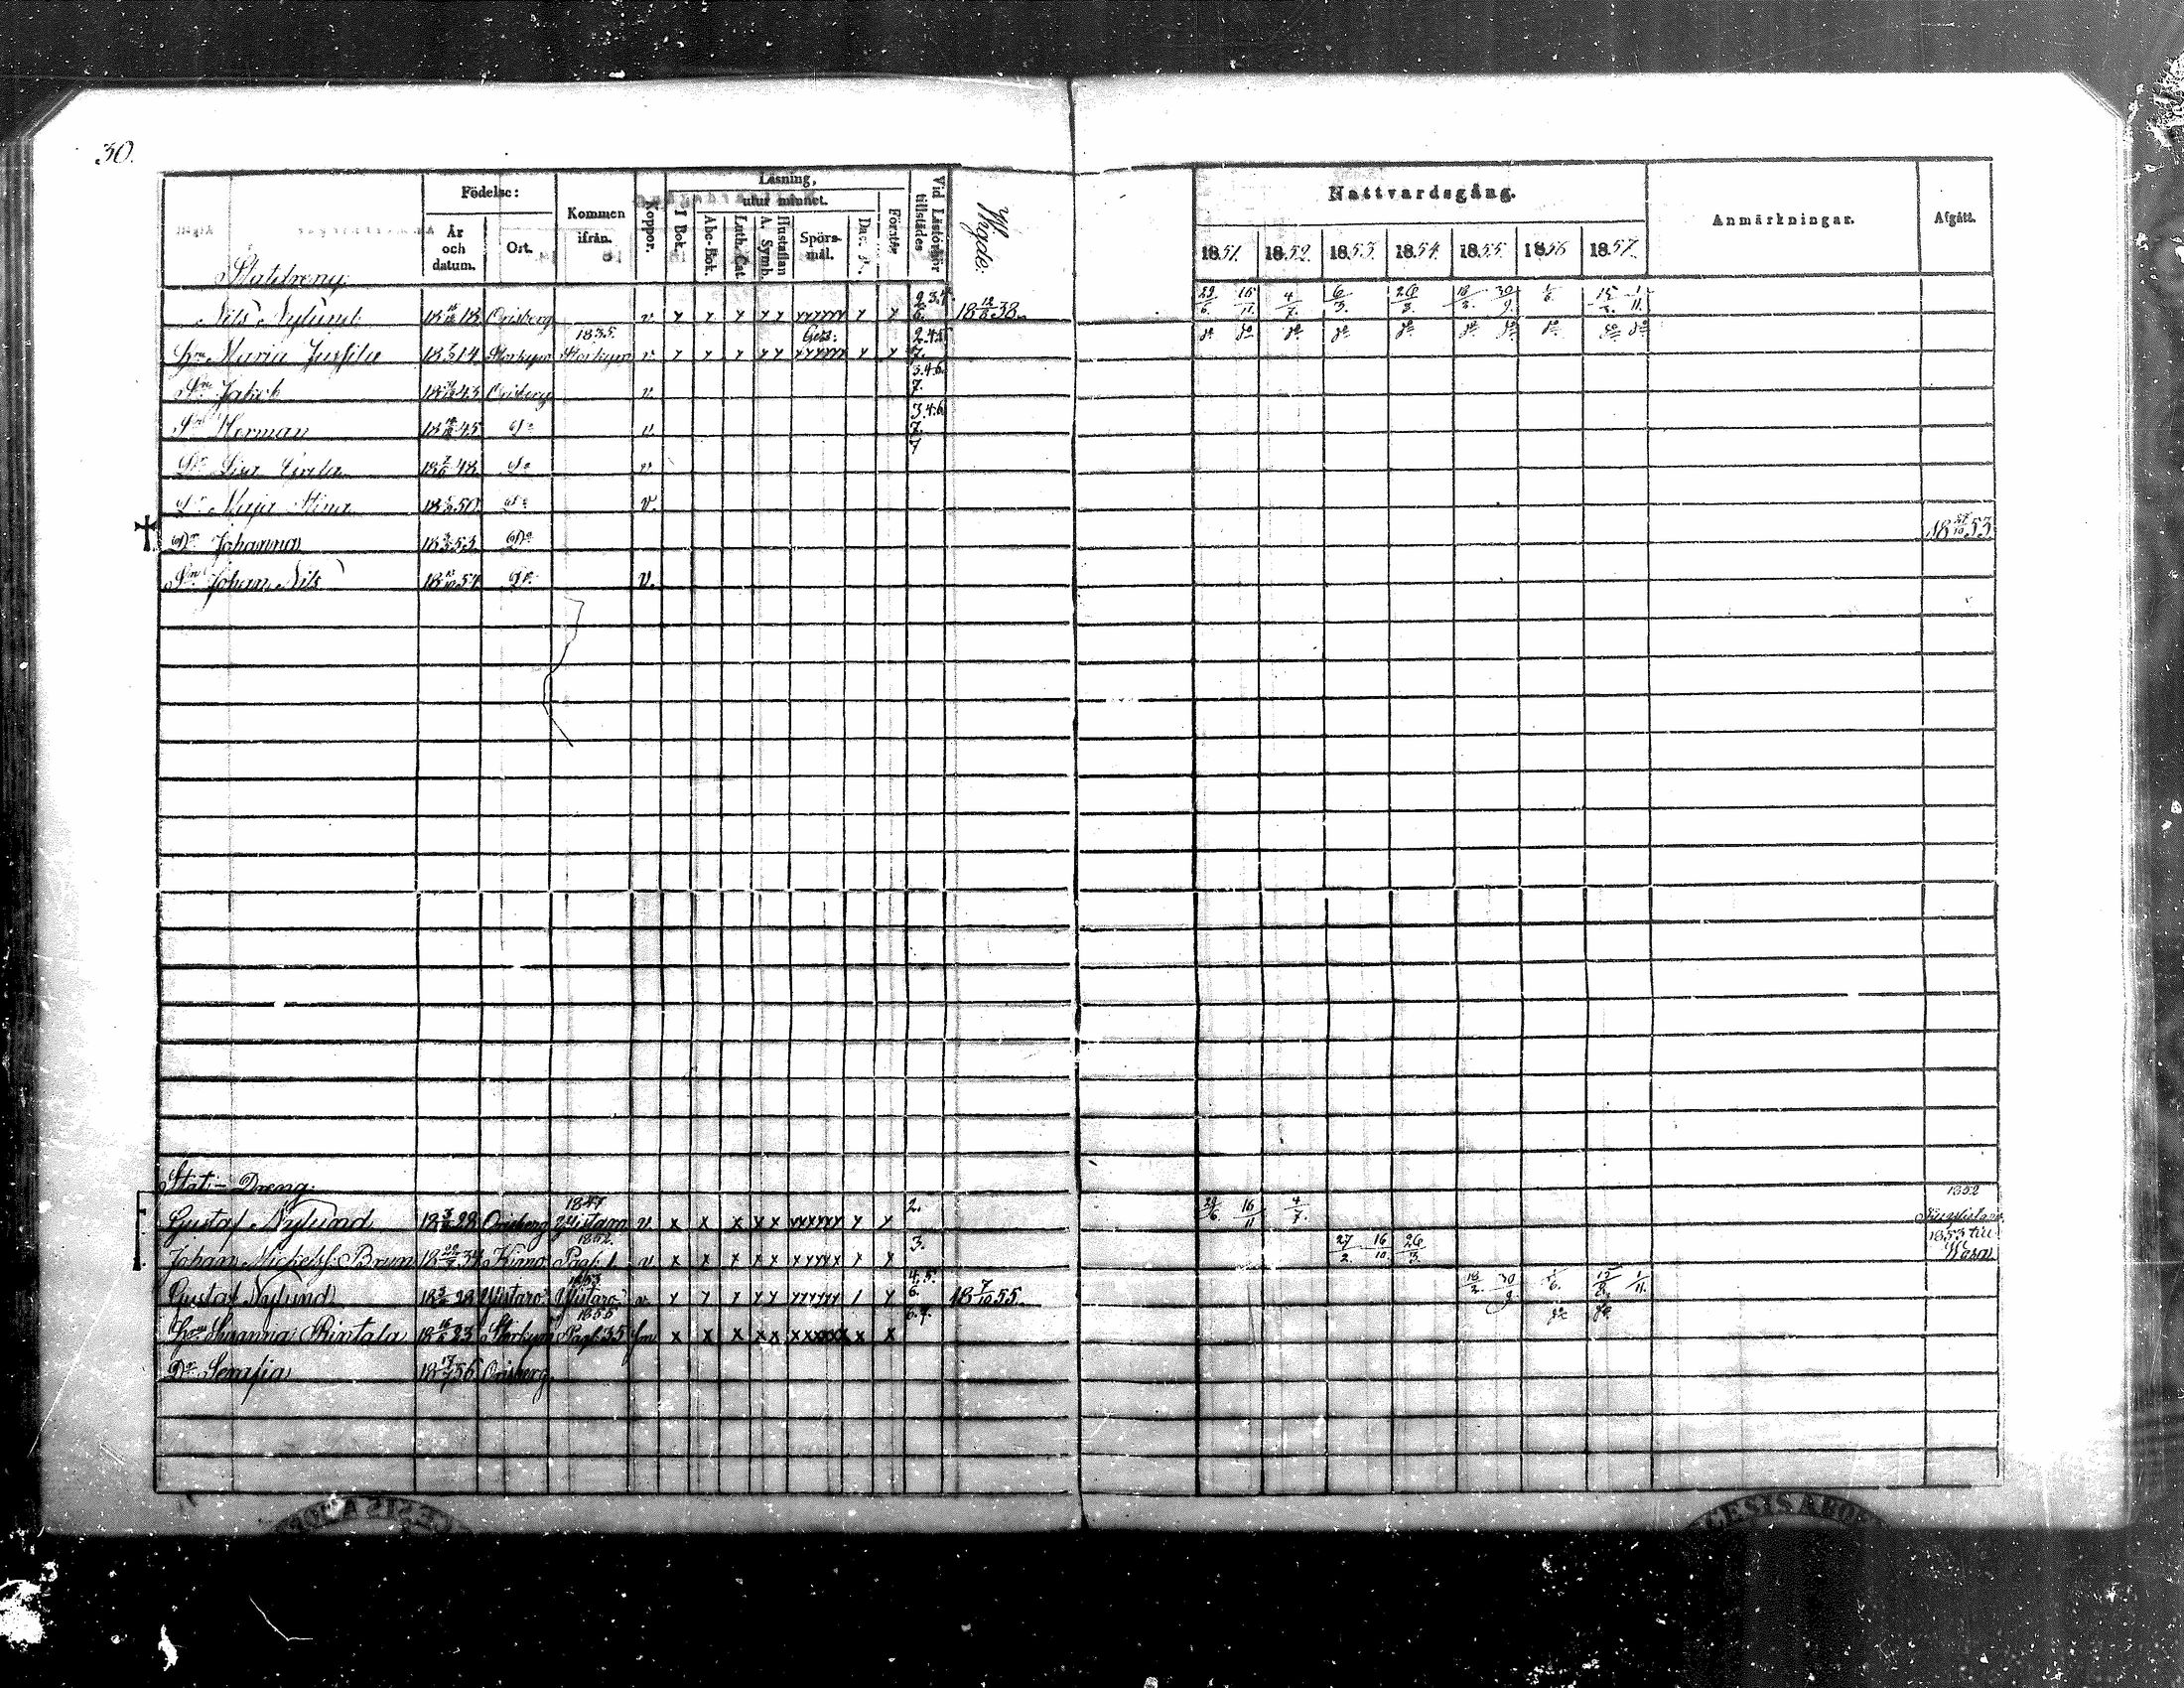 30.
Födelse: Kommen ifrån. Koppor. Läsning, Vid Läsförhör tillstädes Wigde. Nattvardsgång. Anmärkningar. Afgått.
År och datum. Ort. I Bok. utur minnet. Förstår
Abc-Bok. Luth. Cat. A. Symb. Hustaflan Spörsmål. Dav. Ps.
1851. 1852. 1853. 1854. 1855. 1856 1857.
Statdreng
Nils Nylund 18 18 Orisberg v x x x x x xxxxxx x x 2.3.4. 6. 18 12/6 38. 29/6. 16/11. 4/7. 6/3. 26/3. 18/2. 30/9. 1/6. 15/2. 1/11.
1835. Ges:
Hru Maria Jussila 18 14 Storkyro Storkyro v x x x x x xxxxxx x x 2.4.5 7. do do do do do do do do do do
Sn Jakob 18 43 Orisberg v. 3.4.6. 7.
Sn Herman 18 45 do v. 3.4.6 7.
Dr Lisa Greta 18 48 do v 7
Dr Maja Stina 18 50 do v.
† Dr Johanna 18 53 Do 18 27/10 53.
Sn Johan Nils 18 54 Do v.
Stat-Dreng.
1847 1852
Gustaf Nylund 18 28 Orisberg Ylistaro v. x x x x x xxxxxx x x 2. 29/6. 16/11 4/7.
1852. 1853 till
Johan Michelss. Brunn 18 34 Kimo Pag. 1. v x x x x x xxxxx x x 3. 27/2. 16/10. 26/3. Wasa
1853
Gustaf Nylund 18 28 Ylistaro Ylistaro v. x x x x x xxxxxx x x 4.5. 6. 18 7/10 55. 18/2. 30/9. 1/6. 1/11.
1855
Hru Susanna Rintala 18 23 Storkyro Pag. 35 x x x x x xxxxxx x x 6.7. do do
Dr Serafia 18 17/7 56 Orisberg.